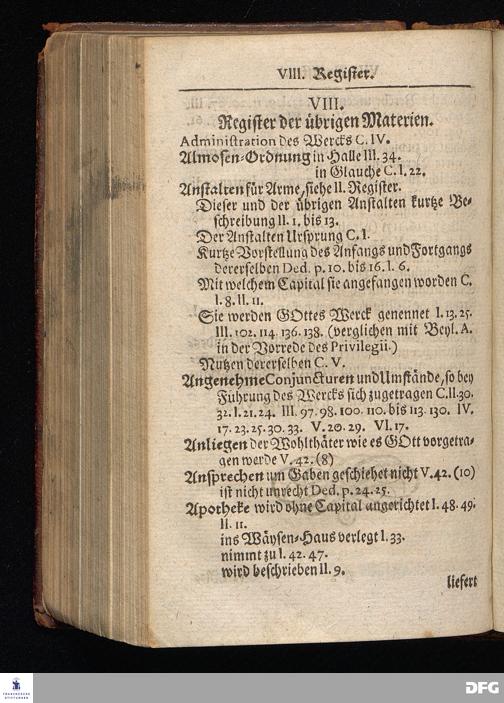 VIII. Register.
VIII.
Register der übrigen Materien.
Administration des Wercks C. IV.
Almosen-Ordnung in Halle III. 34.
in Glauche C. I. 22.
Anstalten für Arme, siehe II. Register.
Dieser und der übrigen Anstalten kurtze Be-
schreibung II. 1. bis 13.
Der Anstalten Ursprung C. I.
Kurtze Vorstellung des Anfangs und Fortgangs
dererselben Ded. p. 10. bis 16. I. 6.
Mit welchem Capital sie angefangen worden C.
I. 8. II. 11.
Sie werden GOttes Werck genennet I. 13. 25.
III. 102. 114. 136. 138. (verglichen mit Beyl. A.
in der Vorrede des Privilegii.)
Nutzen dererselben C. V.
Angenehme Conjuncturen und Umstände, so bey
Führung des Wercks sich zugetragen C. II. 30.
32. I. 21. 24. III. 97. 98. 100. 110. bis 113. 130. IV.
17. 23. 25. 30. 33. V. 20. 29. VI. 17.
Anliegen der Wohlthäter wie es GOtt vorgetra-
gen werde V. 42. (8)
Ansprechen um Gaben geschiehet nicht V. 42. (10)
ist nicht unrecht Ded. p. 24. 25.
Apotheke wird ohne Capital angerichtet I. 48. 49.
II. 11.
ins Wäysen-Haus verlegt I. 33.
nimmt zu I. 42. 47.
wird beschrieben II. 9.
liefert
FRANCKESCHE
STIFTUNGEN
DFG